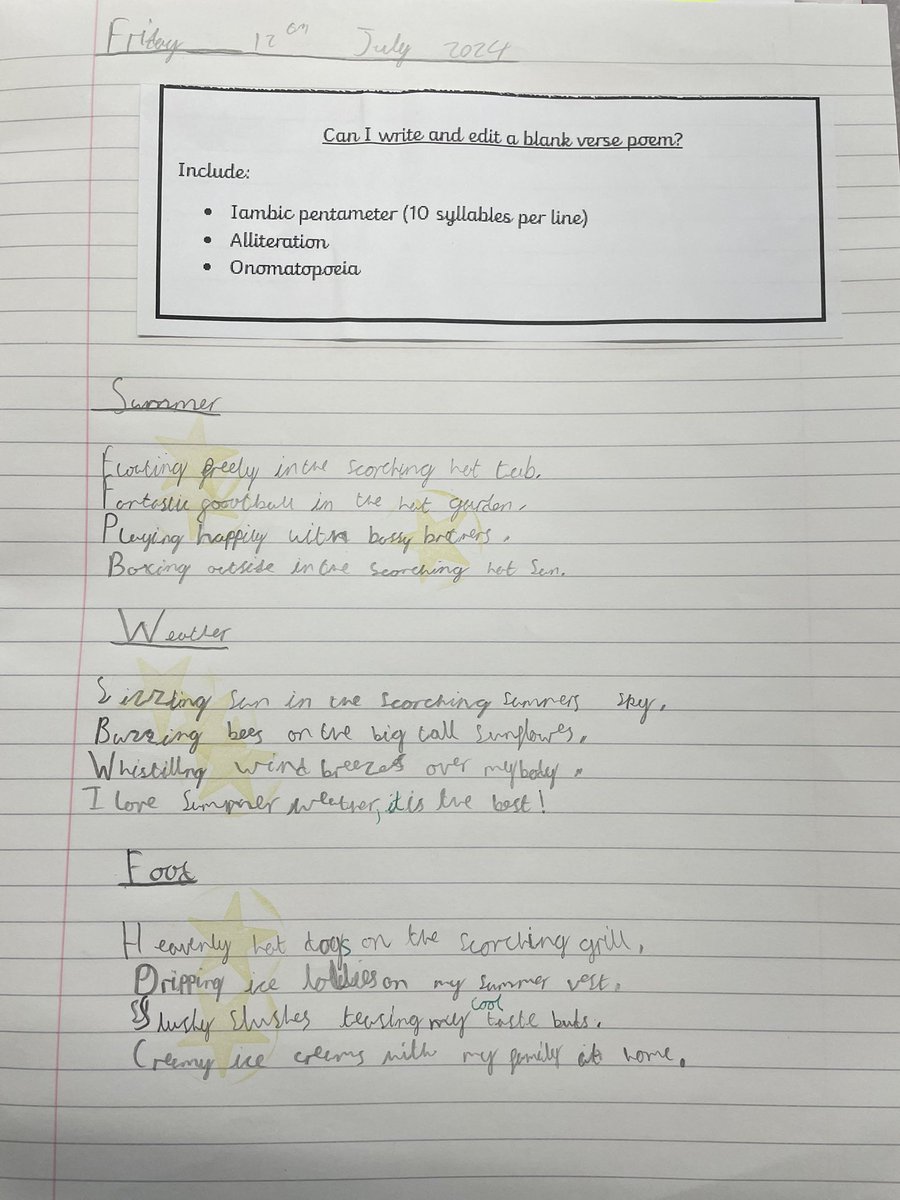 Friday 12th July 2024
Can I write and edit a blank verse poem?
Include:
• Iambic pentameter (10 syllables per line)
• Alliteration
• Onomatopoeia
Summer
Floating freely in the scorching hot tub.
Fantastic football in the hot garden.
Playing happily with bossy brothers.
Boxing outside in the scorching hot sun.
Weather
Sizzling sun in the scorching summers sky.
Buzzing bees on the big tall sunflowes.
Whistilling wind breezes over my body.
I love summer weather, it is the best!
Food
Heavenly hot dogs on the scorching grill.
Dripping ice lollies on my summer vest.
Slushy slushes teasing my cool taste buds.
Creamy ice creams with my family at home.